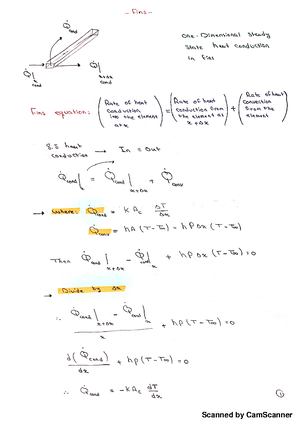 - Fins -
Q̇conv
one-Dimensional steady
state heat conduction
in fins
Q̇cond|x
Q̇|x+Δx cond
Fins equation: (Rate of heat conduction into the element at x) = (Rate of heat conduction from the element at x+Δx) + (Rate of heat convection from the element)
S.S heat conduction → In = Out
Q̇cond|x = Q̇cond|x+Δx + Q̇conv
→ Where: Q̇cond = -kAc ΔT/Δx
Q̇conv = hA (T-T∞) = hPΔx (T-T∞)
Then Q̇cond|x+Δx - Q̇cond|x + hPΔx (T-T∞) = 0
→ Divide by Δx
∴ Q̇cond|x+Δx - Q̇cond|x / x + hp (T-T∞) = 0
d(Q̇cond)/dx + hp (T-T∞) = 0
∴ Q̇cond = -kAc dT/dx
1
Scanned by CamScanner